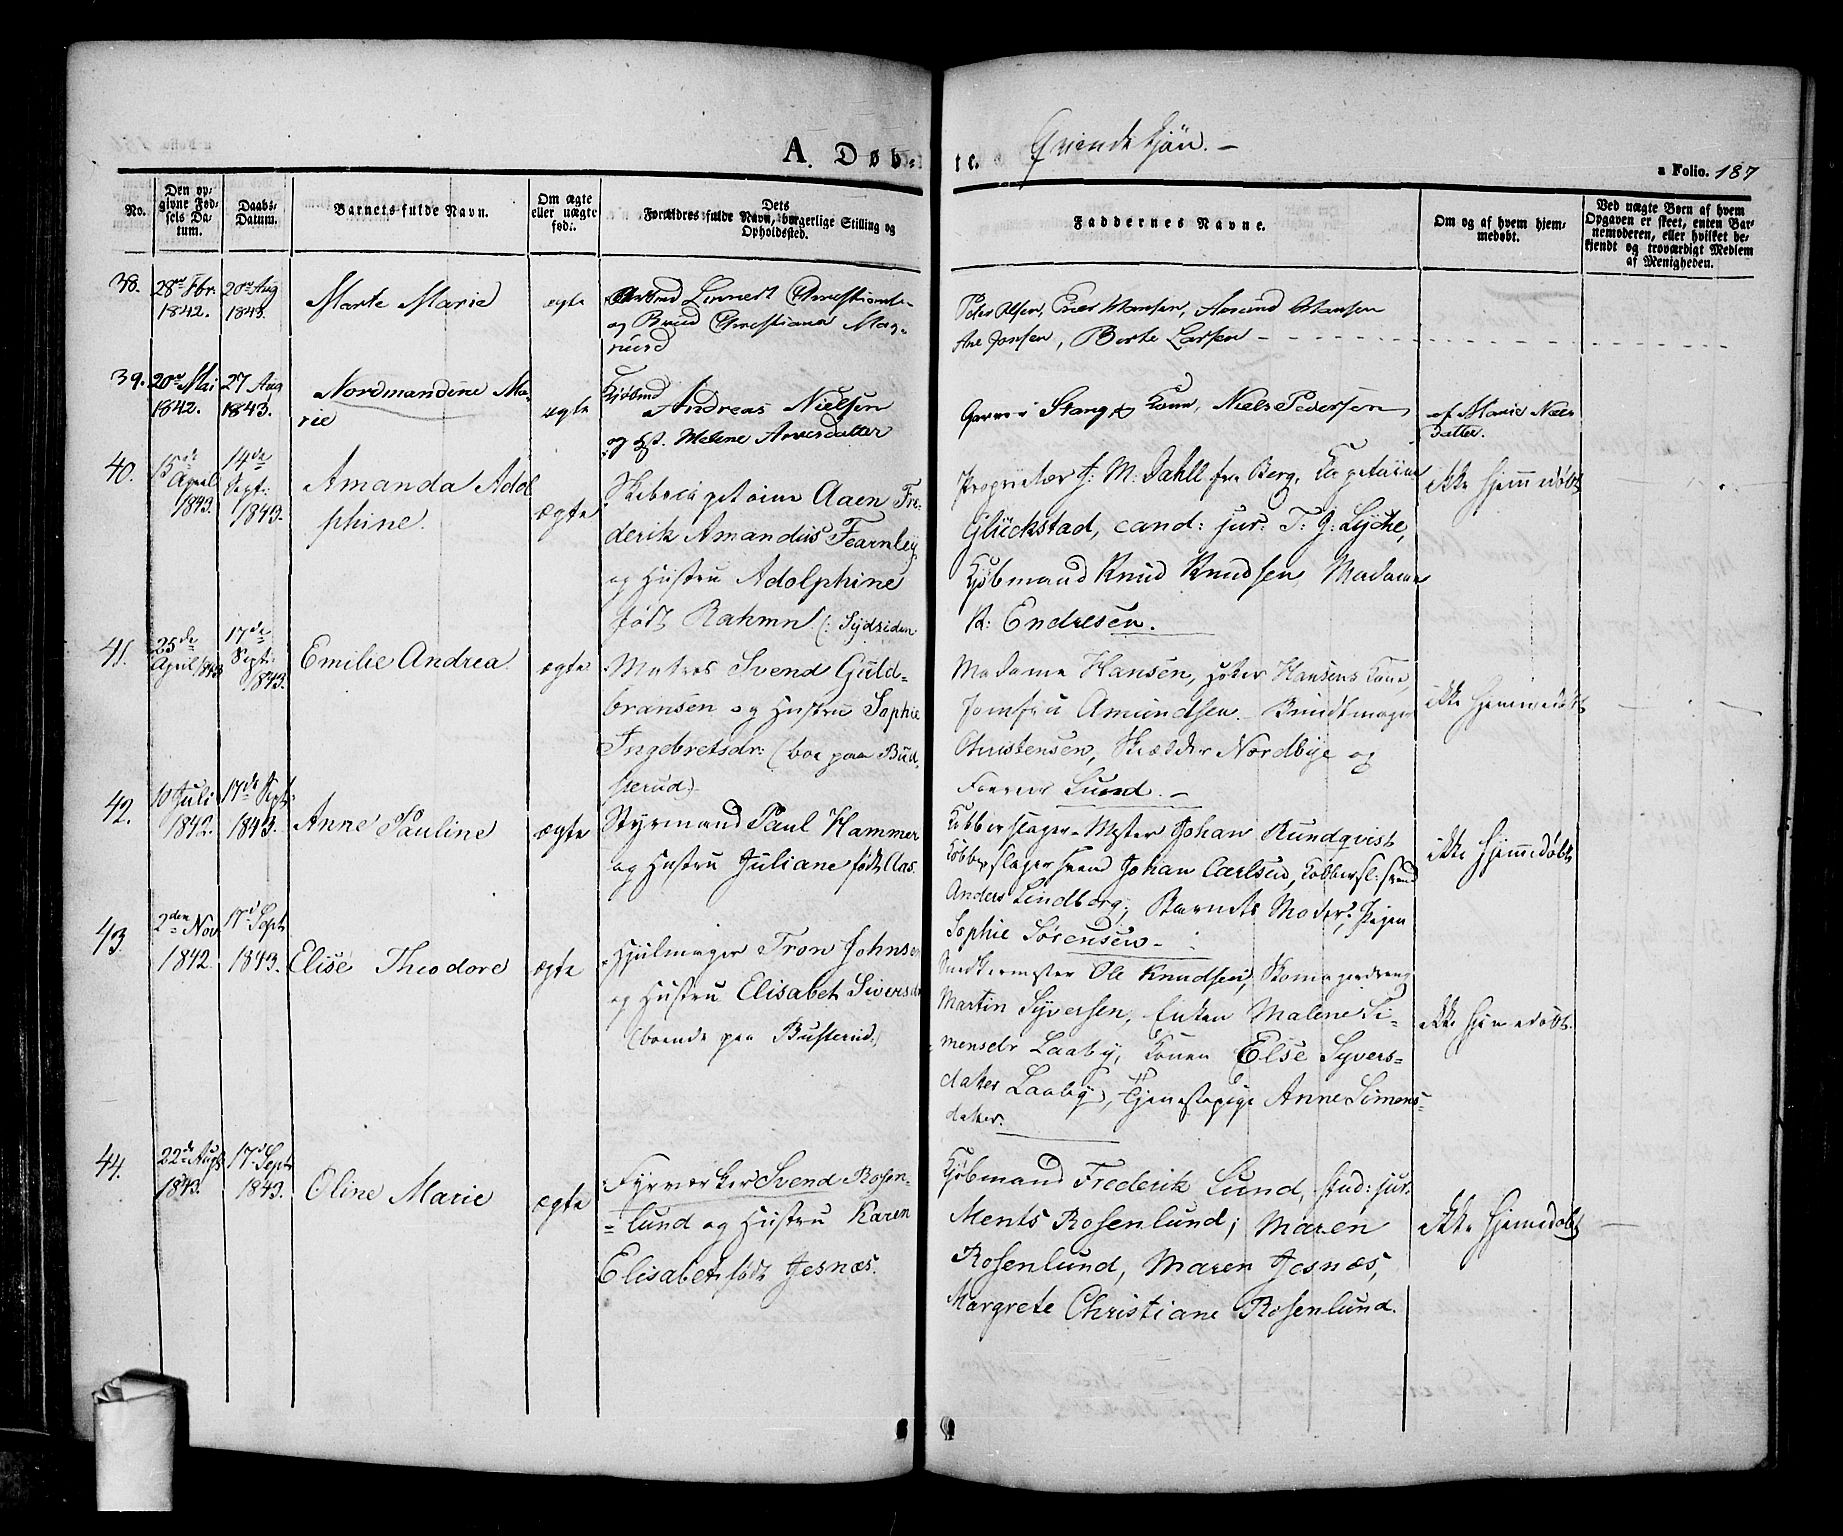 A. Døb-
te. Qvindekjøn. -
a Folio. 187
No.
Den opgivne Fødsels Datum.
Daabs-Datum.
Barnets fulde Navn.
Om ægte eller uægte født.
Dets Forældres fulde Navn, borgerlige Stilling og Opholdssted.
Faddernes Navne.
Om og af hvem hjemmedøbt.
Ved uægte Børn af hvem Opgaven er skeet, enten Barnemoderen, eller hvilket bekjendt og troværdigt Medlem af Menigheden.
38. 28de Fbr. 1842. 20de Aug 1843. Marte Marie ægte
og
Ane Jensen, Berte Larsen
39. 20de Mai 1842. 27 Aug 1843. Nordmandine Marie ægte
Andreas Nielsen
og Hst. Malene
Stang & Kone, Niels Pedersen
af Marie Niels
datter.
40. 15de April 1843. 14de Septr: 1843. Amanda Adolphine. ægte
Skibscapetaine Aaen Frederik Amandus Fearnley
og Hustru Adolphine
født Rahmn (: Sydsiden
Proprietær J. M. Dahll fra Berg, Capetaine
Glückstad, cand: jur: T. G. Lyche,
Kjøbmand Knud Knudsen, Madame
R: Endresen.
ikke hjemmedøbt
41. 25de April 1843 17de Septr: 1843. Emilie Andrea. ægte
Matros Svend Guldbransen og Hustru Sophie
Ingebretsdr: (boe paa Busterud).
Madame Hansen, Høker Hansens Kone,
Jomfru Amundsen. Bundtmager
Christensen, Skrædder Nordbye og
Lund. -
ikke hjemmedøbt
42. 10 Juli 1842. 17de Septr: 1843. Anne Pauline ægte
Styrmand Paul Hammer
og Hustru Juliane født Aas.
Kobberslager-Mester Johan Rundqvist
Kobberslagersvend Johan Carlsen, Kobbersl: svend
Anders Lindberg, Barnets Moder, Pigen
Sophie Sørensen -
ikke hjemmedøbt
43. 2den Nov. 1842. 17de Septr 1843. Elise Theodore ægte
Hjulmager Tron Johnsen
og Hustru Elisabet Siversdr
(boende paa Busterud.)
Snedkermester Ole Knudsen, Skomagerdreng
Martin Syversen, Enken Malene Simensdr Laaby, Konen Else Syversdatter Laaby, Tjenestepige Anne Simensdatter.
ikke hjemmedøbt.
44. 22de Augt 1843. 17de Septr 1843. Oline Marie ægte
Fyrværker Svend Rosenlund og Hustru Karen
Elisabet født Jesnæs.
Kjøbmand Frederik Lund, stud: jur:
Ments Rosenlund; Maren
Rosenlund, Maren Jesnæs,
Margrete Christiane Rosenlund.
ikke hjemmedøbt